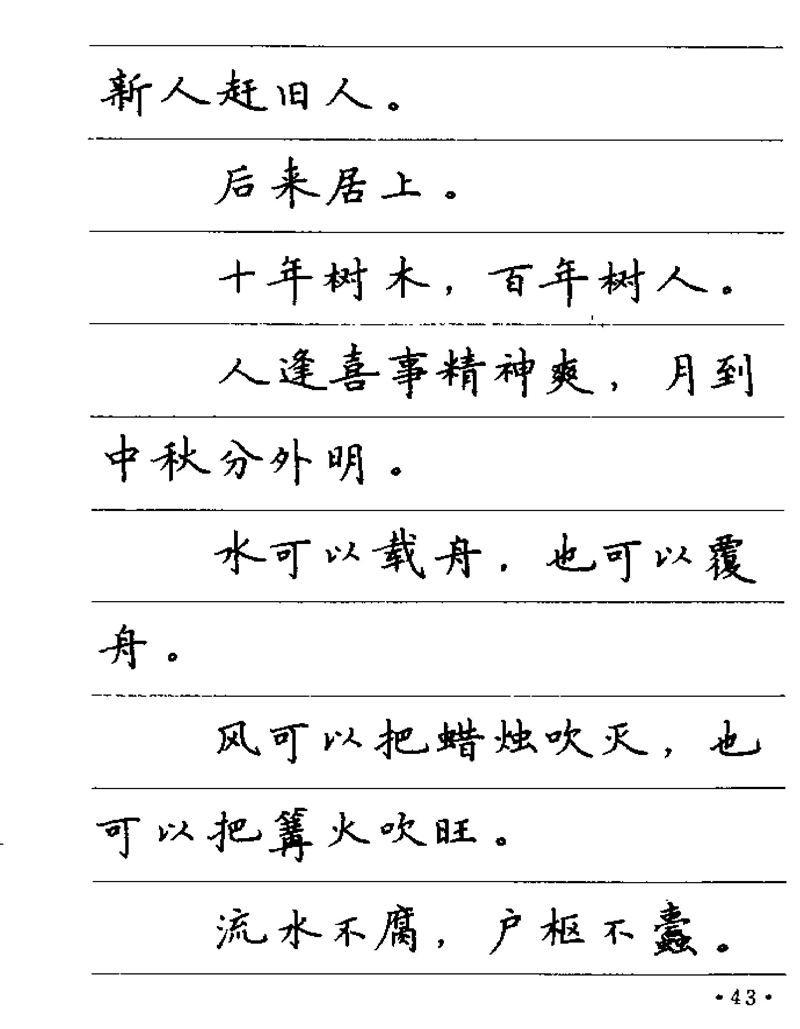 新人赶旧人。
后来居上。
十年树木，百年树人。
人逢喜事精神爽，月到
中秋分外明。
水可以载舟，也可以覆
舟。
风可以把蜡烛吹灭，也
可以把篝火吹旺。
流水不腐，户枢不蠹。
·43·